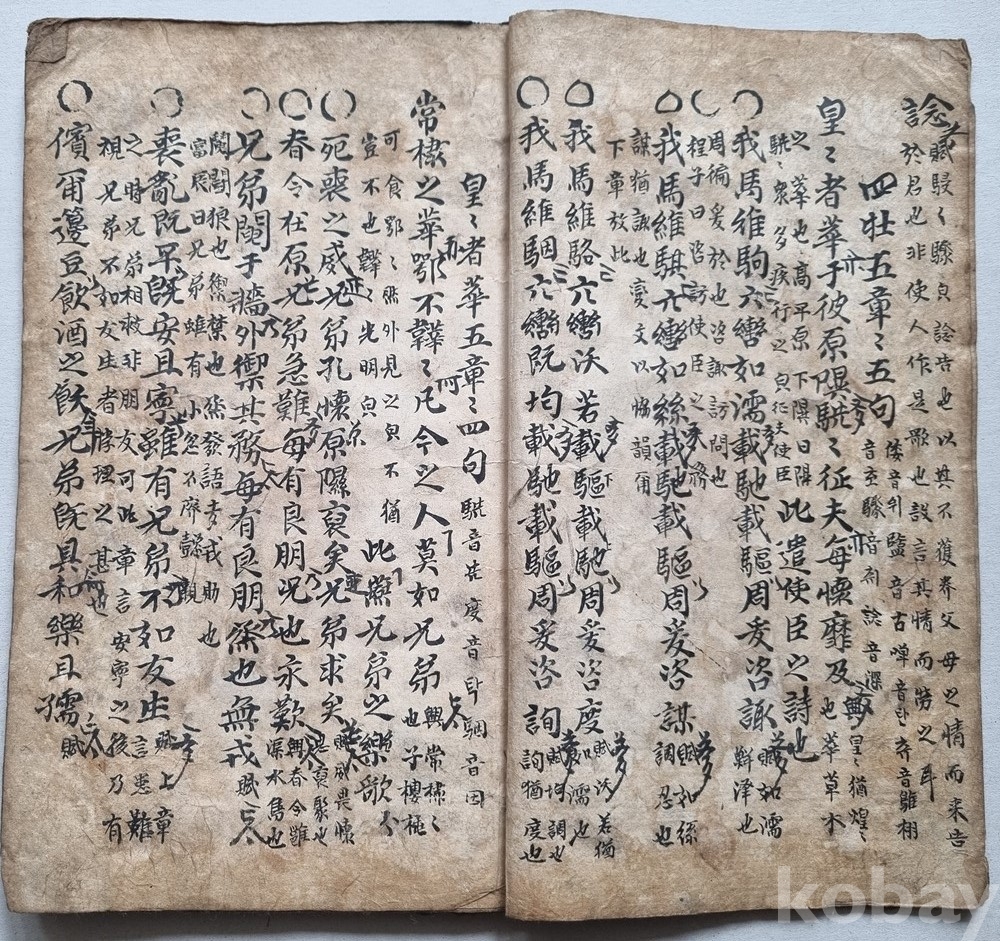 諗賦駸〻驟皃諗告也以其不獲養父母之情而来告
於君也非使人作是歌也設言其情而勞之耳
四牡五章〻五句倭音위盬音古嘽音탄弃音雖栩
驟音諗音深
皇〻者華于彼原隰駪〻征夫每懷靡及興也皇〻猶煌〻也華草木
之華也高平原下隰曰隰
駪〻衆多疾行之皃征夫使臣此遣使臣之詩也
○我馬維駒六轡如濡載馳載驅周爰咨諏賦如濡鮮泽也
○周徧爰於也咨諏訪問也
程子曰咨訪使臣之大務
○我馬維騏六轡如絲載馳載驅周爰咨謀賦如絲調忍也
謀猶諏也變文以恊韻爾
下章放此
○我馬維駱六轡沃若載驅載馳周爰咨度賦沃若猶如濡也
○我馬維駰六轡既均載馳載驅周爰咨詢賦均調也詢猶度也
皇〻者華五章〻四句駪音선度音탁駰音因
常棣之華鄂不韡〻凡今之人莫如兄弟興常棣〻也子櫻桃
可食鄂〻然外見之皃不猶
豈不也韡〻光明皃此燕兄弟之樂歌
○死喪之威兄弟孔懷原隰裒矣兄弟求矣賦威畏懷思裒聚也
○脊令在原兄弟急難每有良朋况也永歎興脊令雝渠水鳥也
○兄弟鬩于墻外禦其務每有良朋烝也無戎賦
鬩鬪狠也禦禁也烝發語声戎助也
富辰曰兄弟雖有小忿不廃懿親
○喪亂既平既安且寧雖有兄弟不如友生賦上章言患難
之時兄弟相救非朋友可比此章言安寧之後乃有
視兄弟不如友生者悖理之甚也
○儐爾籩豆飲酒之飫兄弟既具和樂且孺賦
kobay